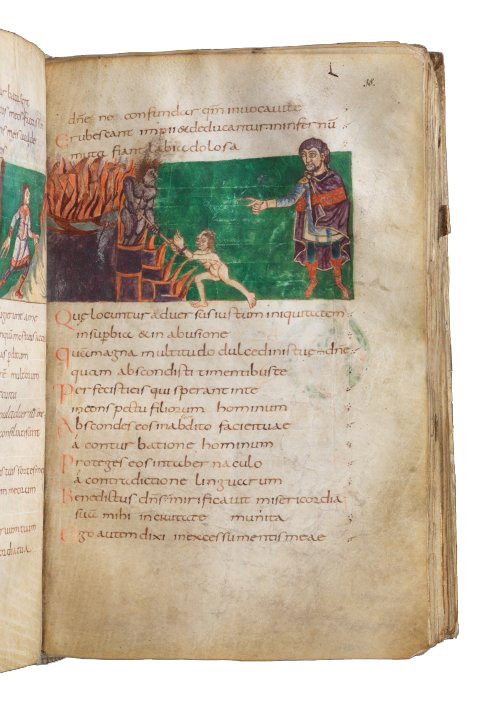 38.
dñe nо confundar qm̄ inuocauite
Erubescant impii & deducantur ininfernū
muta fiant labia dolosa
Que locuntur aduersusiustum iniquitatem
insuphia & in abusione
quam magna multitudo dulcedinistue dn̄e
quam abscondisti timentibuste
Perfecistieis qui sperant inte
inconspectu filiorum hominum
Abscondes eos inabdito facietuae
a conturbatione hominum
Proteges eos intabernaculo
a contradictione linguarum
Benedictus dn̄s mirificauit misericordia
suā mihi inciuitate munita
Ego autem dixi inexcessu mentis meae